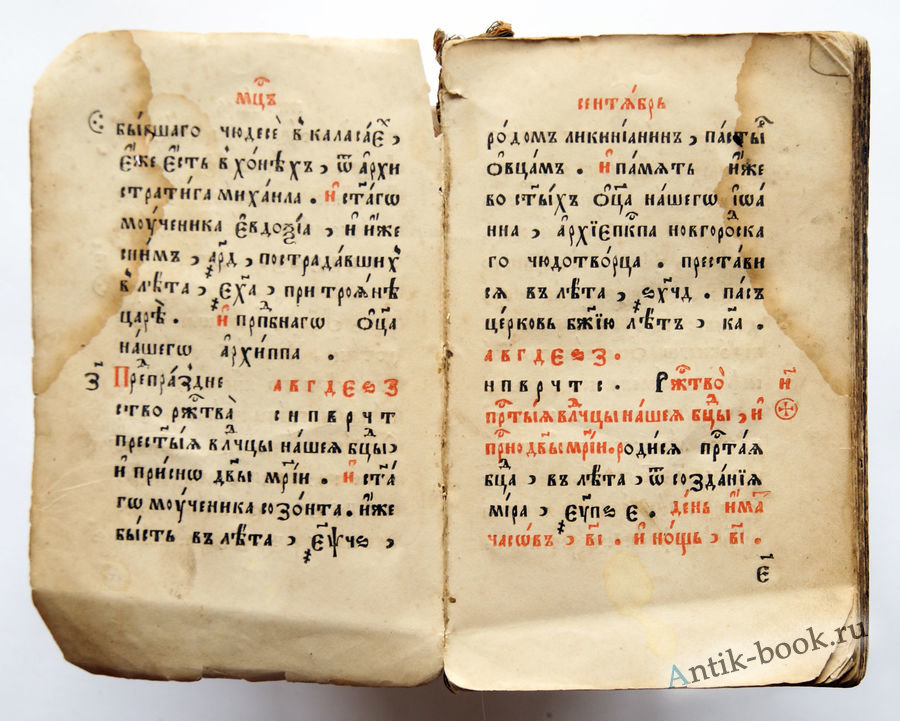 мц҃ъ
бы́вшаго чюдесѐ в̾ каласа́е҆х ,
е҆́же е҆́сть в̾ хо́нѣхъ , ѿ а҆рхи
страти́га михаила . и҆ ст҃а́гѡ
моу́ченика е҆вдоѯі́а , и҆ и҆́же
сни́мъ , ҂а҃рд , пострада́вших̾
в̾ лѣ́та , ҂е҃ха , при троѧ́нѣ
царѐ . и҆ прпⷣбнагѡ ѻ҆ц҃а̀
нашегѡ а҆рхи́ппа .
з҃ Препра́зⷣне а в г д е ѕ з
ство ржⷭ҇тва̀ с н п в р ч т
прест҃ы́ѧ влⷣчцы на́шеѧ бцⷣы ,
и҆ при́снѡ дв҃ы мр҃і́и . и҆ ст҃а́
гѡ моу́ченика созо́нта . и҆́же
бы́сть в лѣ́та , ҂е҃ѱчѕ ,
сентѧ́брь
ро́домъ ликиніанинъ , па́стырⷭ҇
ѻ҆вца́мъ . и҆ па́мѧть и҆́же
во ст҃ы́хъ ѻ҆ц҃а̀ на́шегѡ і҆ѡа́
нна , а҆рхїепⷭ҇кпа новгоро́дⷭ҇ска
го чюдотво́рца . преста́ви
сѧ в лѣ́та , ҂ѕ҃хчд . па́съ
це́рковь бж҃їю лѣ́тъ , к҃а .
а в г д е ѕ з .
н п в р ч т с . Ржⷭ҇тво̀ и҃
прⷭ҇ты́ѧ влⷣчцы на́шеѧ бцⷣы , и҆
прⷭ҇но дв҃ы мр҃і́и . роди́сѧ прⷭ҇та́ѧ
бцⷣа , в лѣ́та , ѿ созда́нїѧ
мі́ра , ҂е҃у п ѕ е . де́нь и҆́матⷮ
часѡ́въ , в҃і . и҆ но́щь , в҃і .
е҃
Antik-book.ru